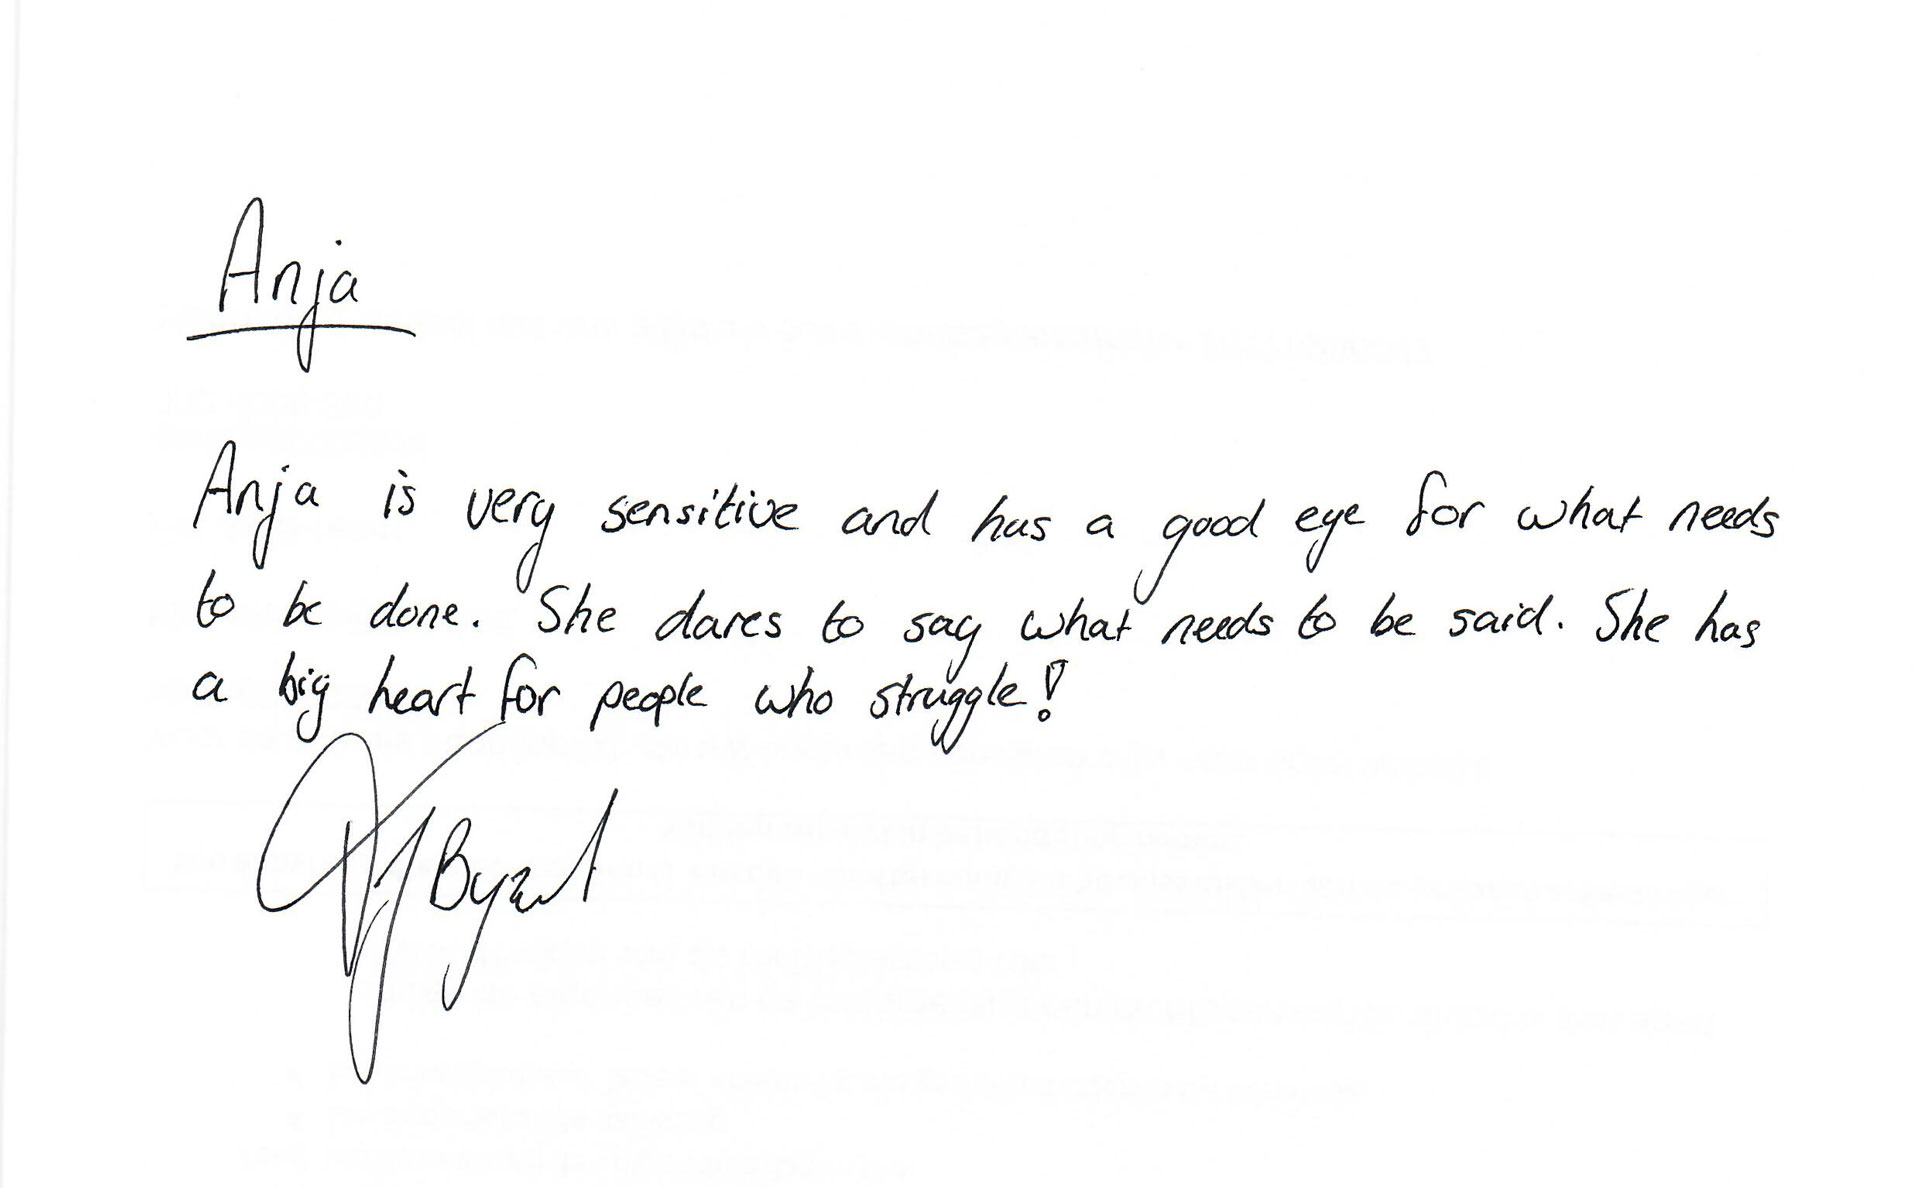 Anja
Anja is very sensitive and has a good eye for what needs
to be done. She dares to say what needs to be said. She has
a big heart for people who struggle!